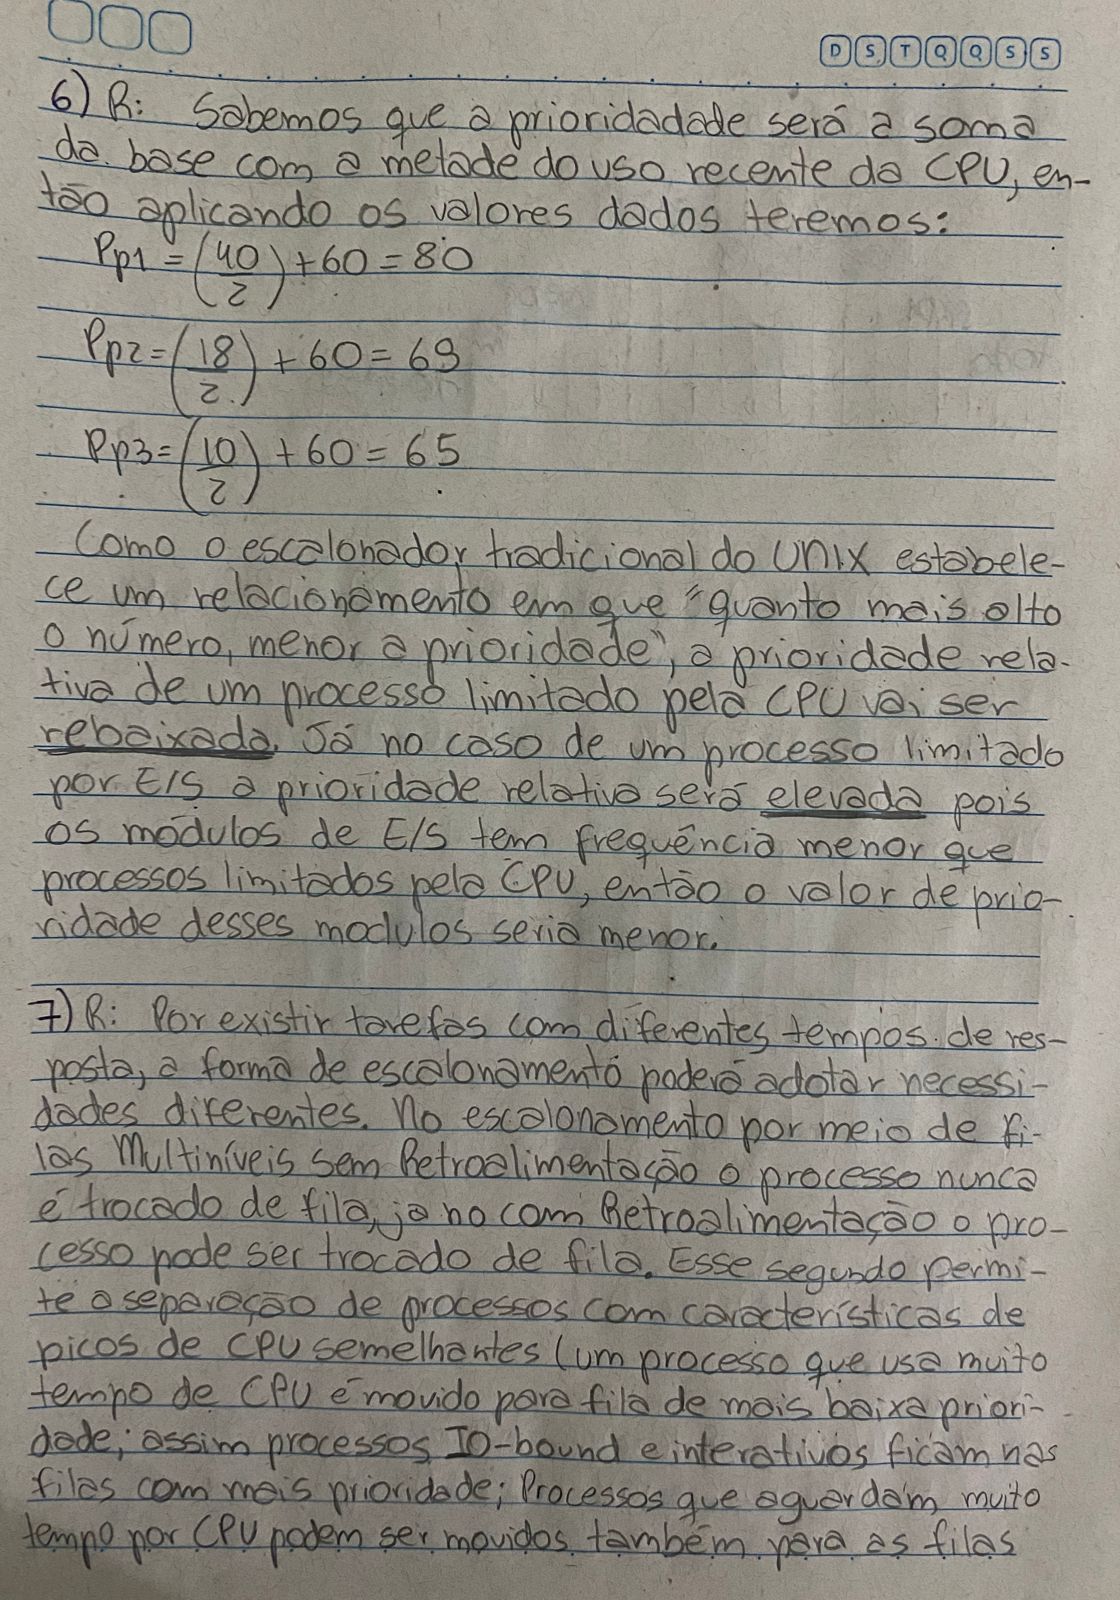 D S T Q Q S S
6) R: Sabemos que a prioridadade será a soma
da base com a metade do uso recente da CPU, en-
tão aplicando os valores dados teremos:
Pp1 = (40/2) + 60 = 80
Pp2 = (18/2) + 60 = 69
Pp3 = (10/2) + 60 = 65
Como o escalonador tradicional do UNIX estabele-
ce um relacionamento em que "quanto mais alto
o número, menor a prioridade", a prioridade rela-
tiva de um processo limitado pela CPU vai ser
rebaixada. Já no caso de um processo limitado
por E/S a prioridade relativa será elevada pois
os módulos de E/S tem frequência menor que
processos limitados pela CPU, então o valor de prio-
ridade desses modulos seria menor.
7) R: Por existir tarefas com diferentes tempos de res-
posta, a forma de escalonamento poderá adotar necessi-
dades diferentes. No escalonamento por meio de fi-
las Multiníveis sem Retroalimentação o processo nunca
é trocado de fila, ja no com Retroalimentação o pro-
cesso pode ser trocado de fila. Esse segundo permi-
te a separação de processos com características de
picos de CPU semelhantes (um processo que usa muito
tempo de CPU é movido para fila de mais baixa priori-
dade; assim processos IO-bound e interativos ficam nas
filas com mais prioridade; Processos que aguardam muito
tempo por CPU podem ser movidos também para as filas